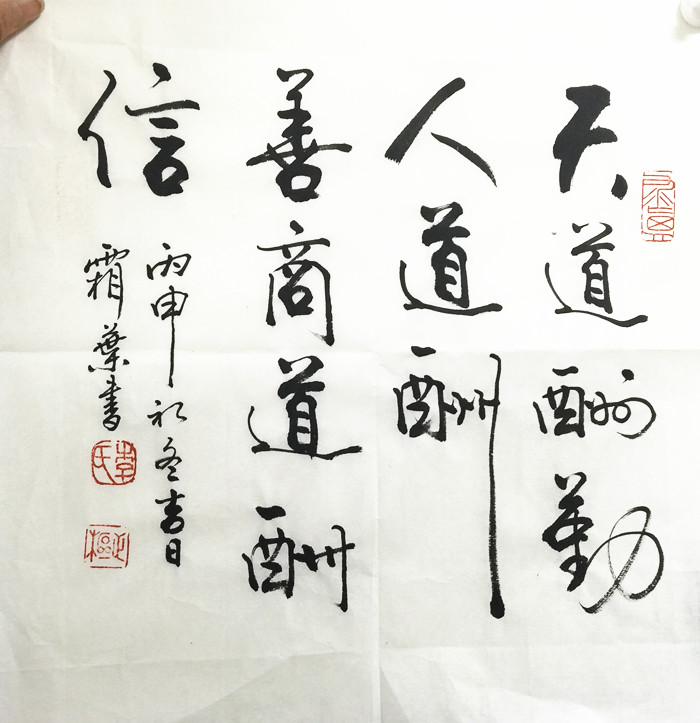 天道酬勤
人道酬
善商道酬
信
丙申初冬吉日
霜葉書
李氏